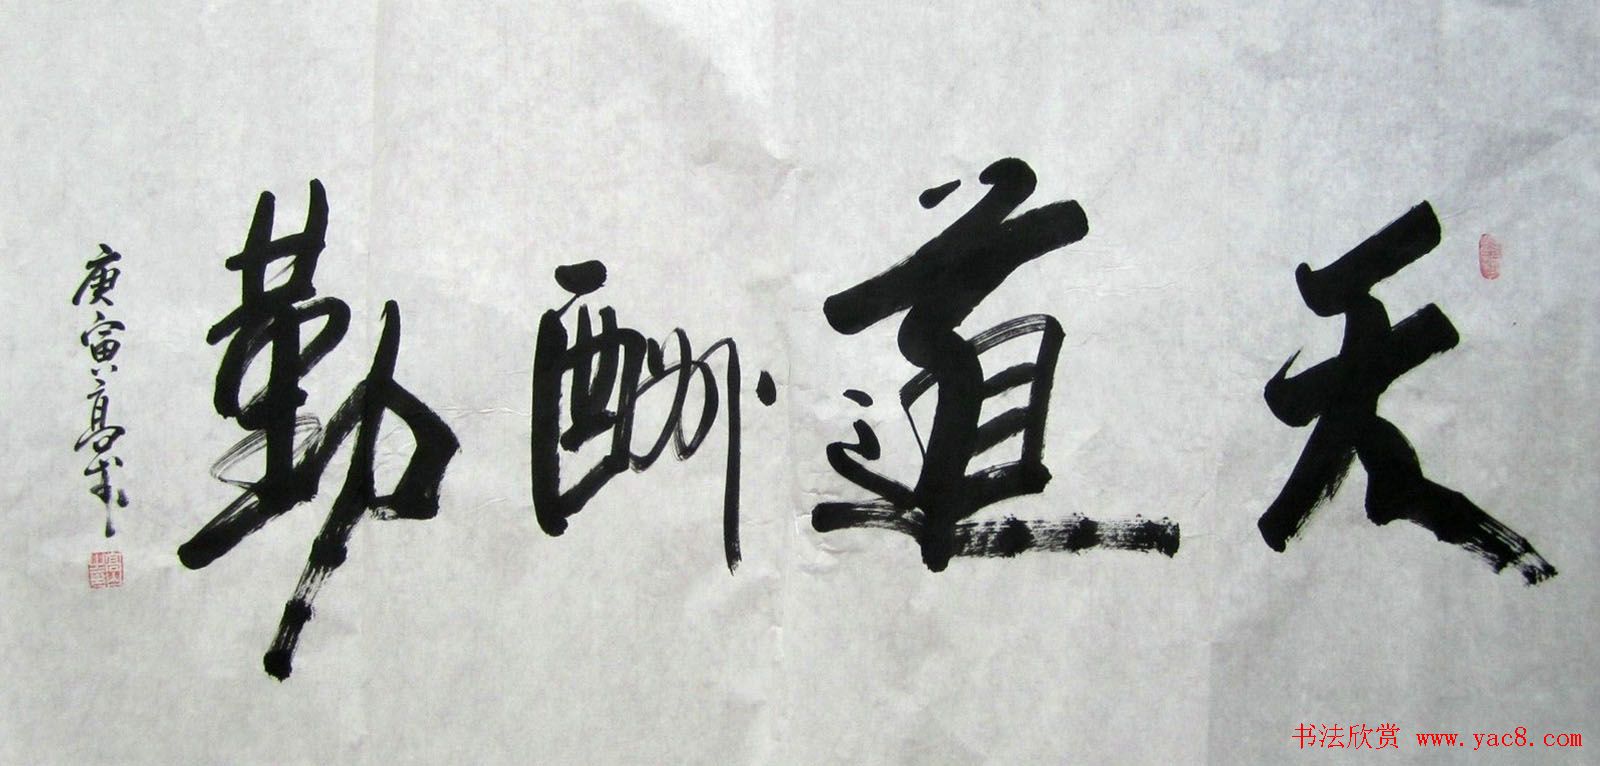 天道酬勤
庚寅高
书法欣赏 www.yac8.com